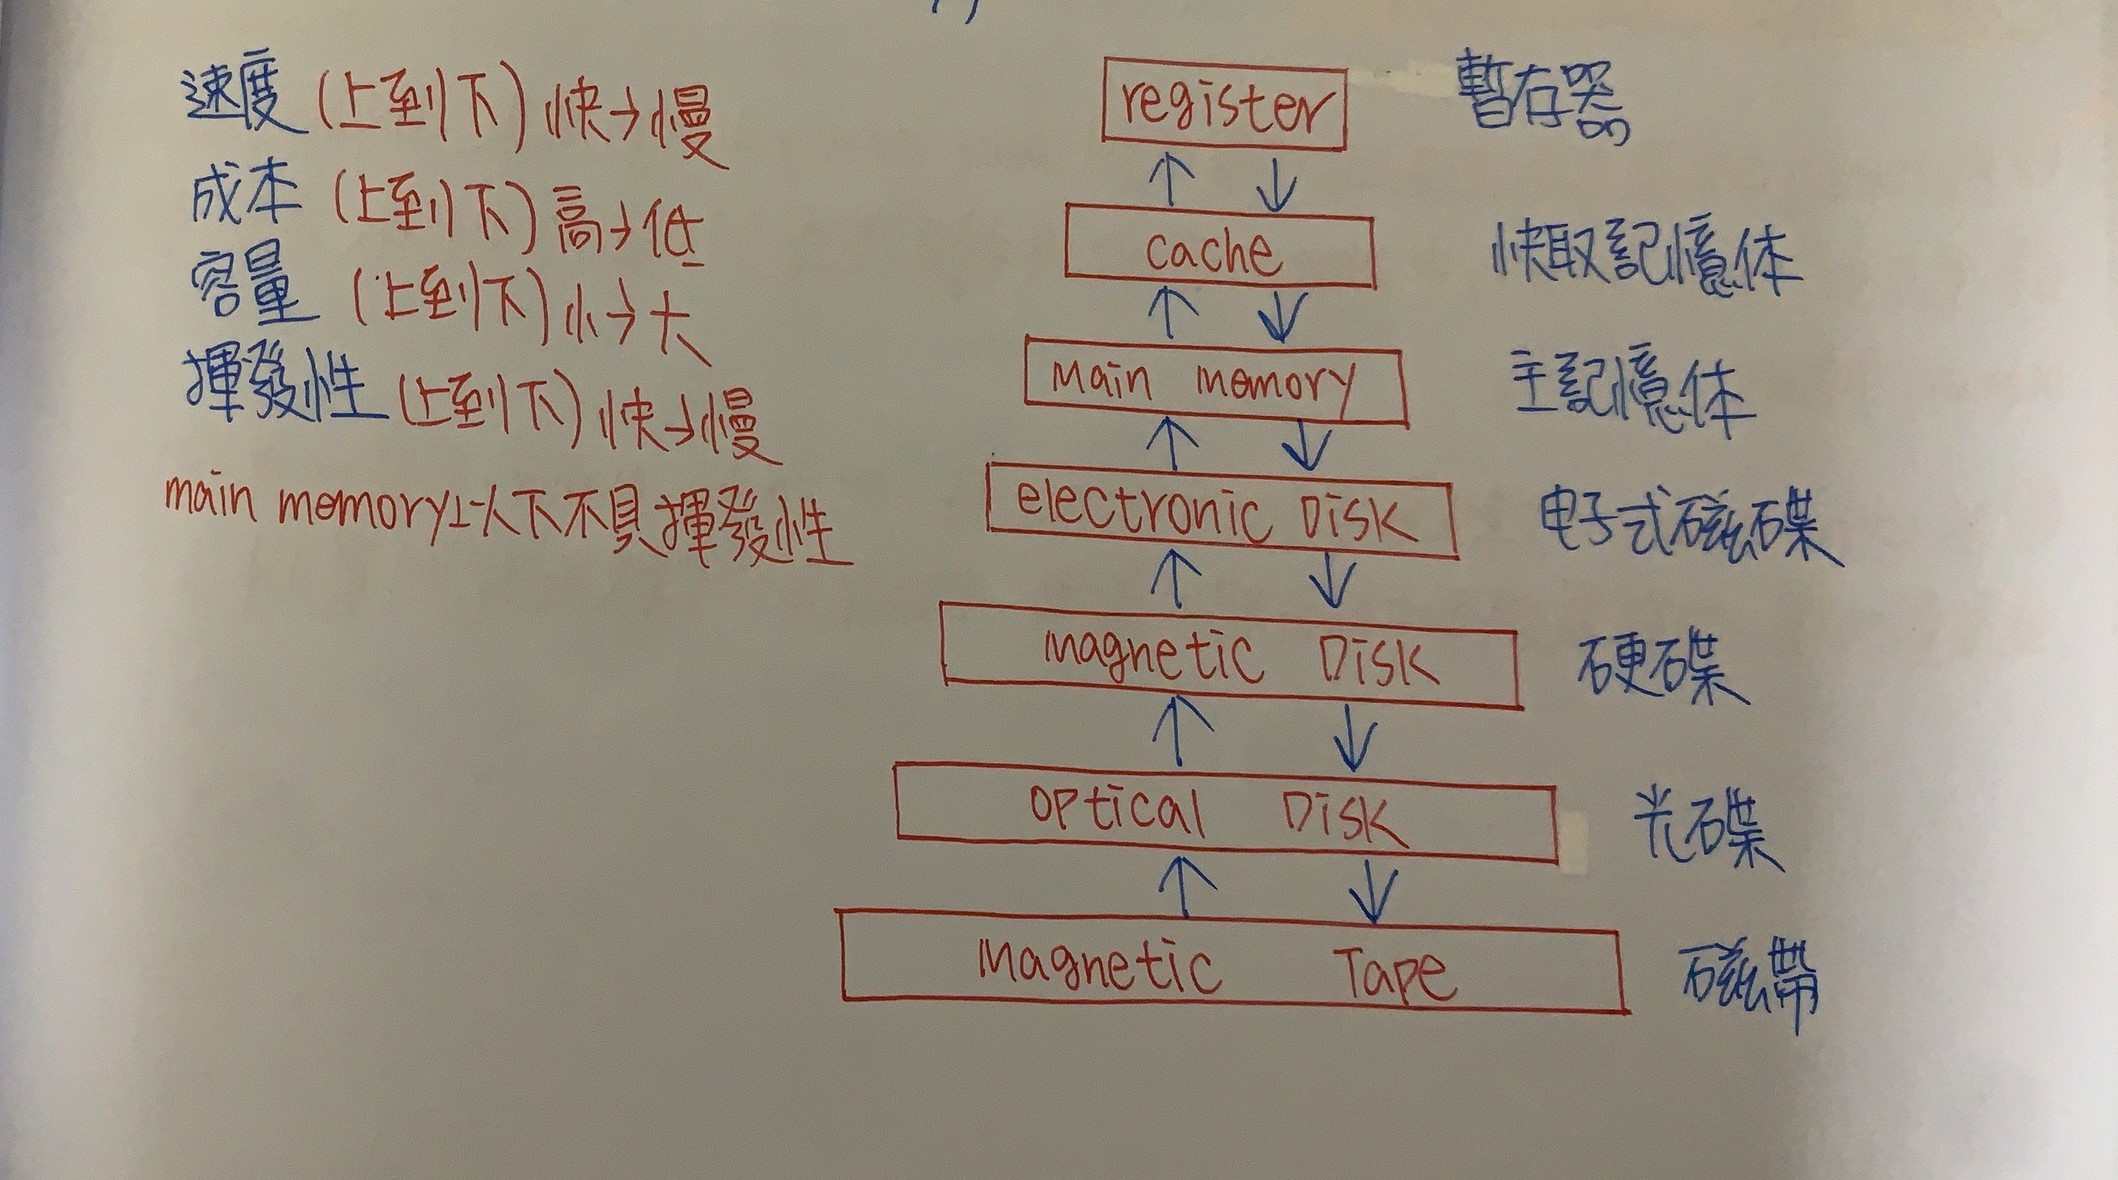 速度 (上到下) 快→慢
成本 (上到下) 高→低
容量 (上到下) 小→大
揮發性 (上到下) 快→慢
main memory以下不具揮發性
register 暫存器
cache 快取記憶体
main memory 主記憶体
electronic Disk 电子式磁碟
magnetic Disk 硬碟
optical Disk 光碟
magnetic Tape 磁帶